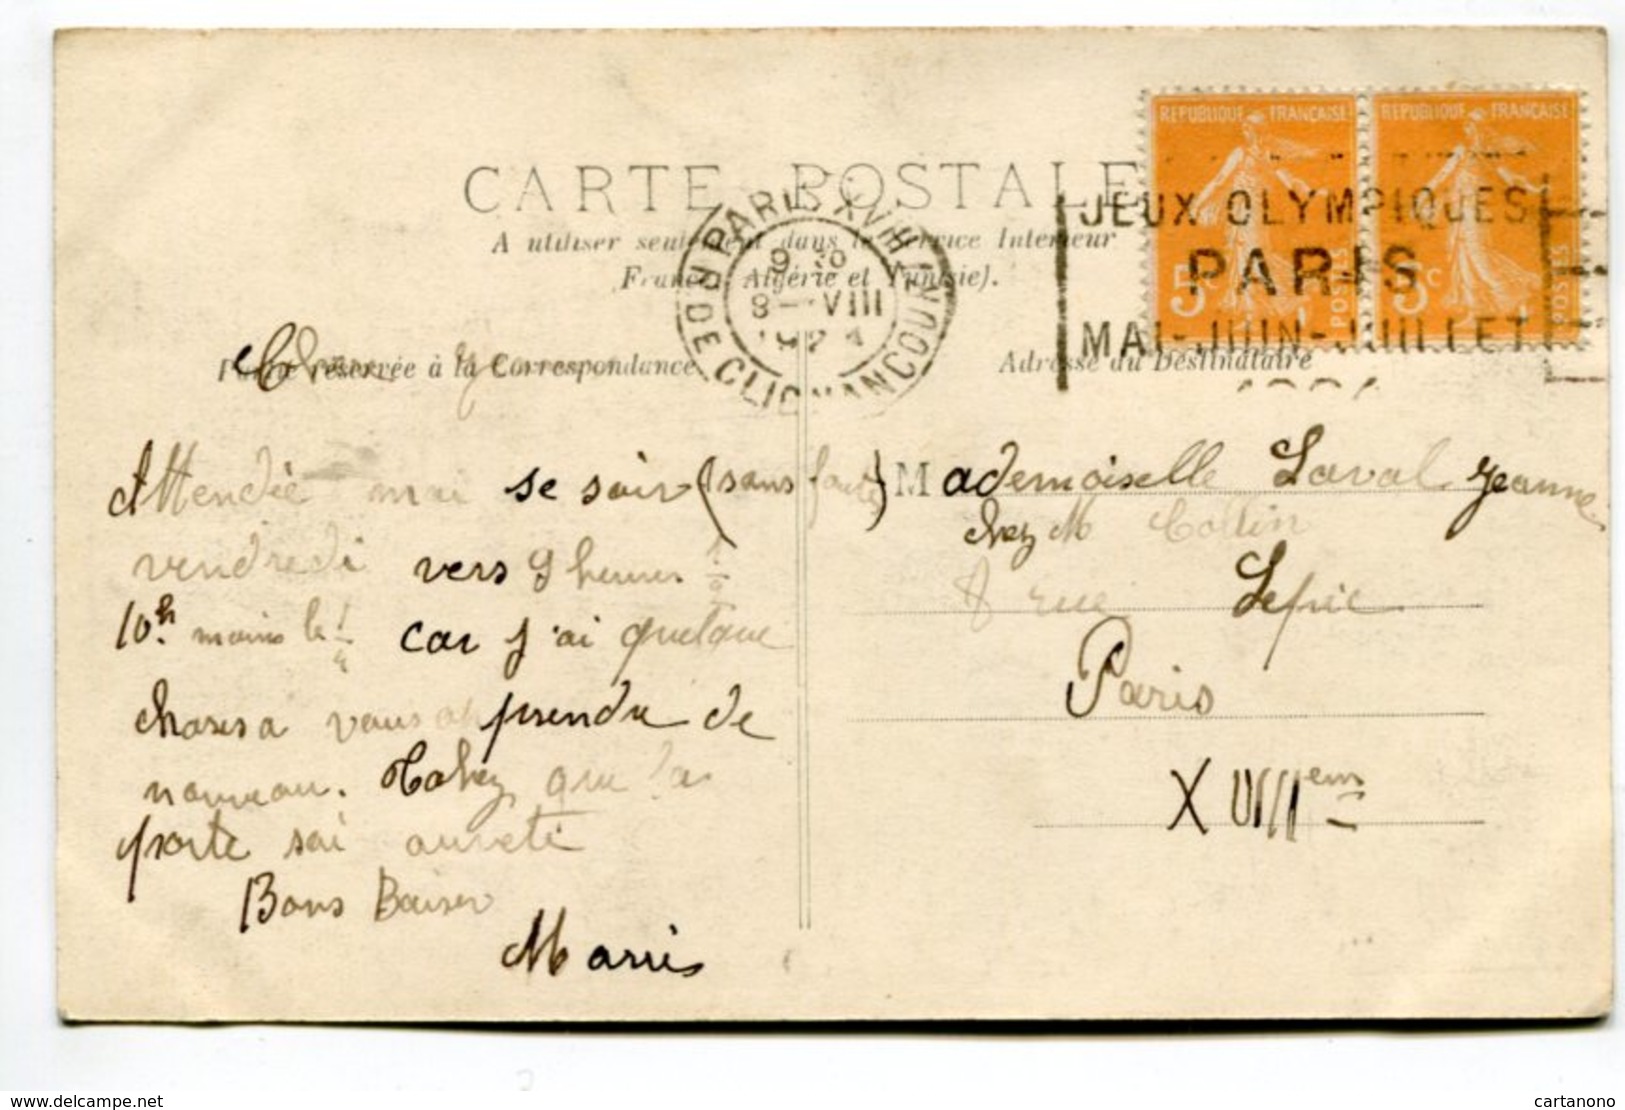 CARTE POSTALE
A utiliser seulement dans le Service Intérieur
France, Algérie et Tunisie).
Partie réservée à la Correspondance
Adresse du Destinataire
REPUBLIQUE FRANÇAISE
5c
POSTES
REPUBLIQUE FRANÇAISE
5c
POSTES
JEUX OLYMPIQUES
PARIS
MAI-JUIN-JUILLET
PARIS XVIII
R. DE CLIGNANCOURT
8 - VIII
Attendée moi se soir (sans faute)
vendredi vers 9 heures 1/2
10h moins le 1/4 car j'ai quelque
choses a vous prendre de
nouveau.
porte soi
Bons Baiser
Mademoiselle Laval Jeanne
chez M Collin
8 rue Lepic
Paris
XVIIIem
www.delcampe.net
cartanono